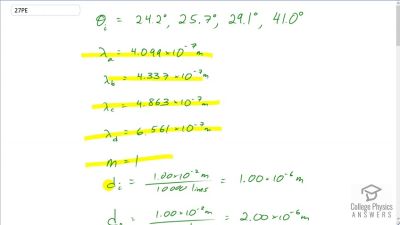 27PE
θᵢ = 24.2°, 25.7°, 29.1°, 41.0°
λₐ = 4.099 × 10⁻⁷ m
λ_b = 4.337 × 10⁻⁷ m
λ_c = 4.863 × 10⁻⁷ m
λ_d = 6.561 × 10⁻⁷ m
m = 1
dᵢ = 1.00 × 10⁻² m / 10000 lines = 1.00 × 10⁻⁶ m
= 1.00 × 10⁻² m = 2.00 × 10⁻⁶ m
College Physics
ANSWERS